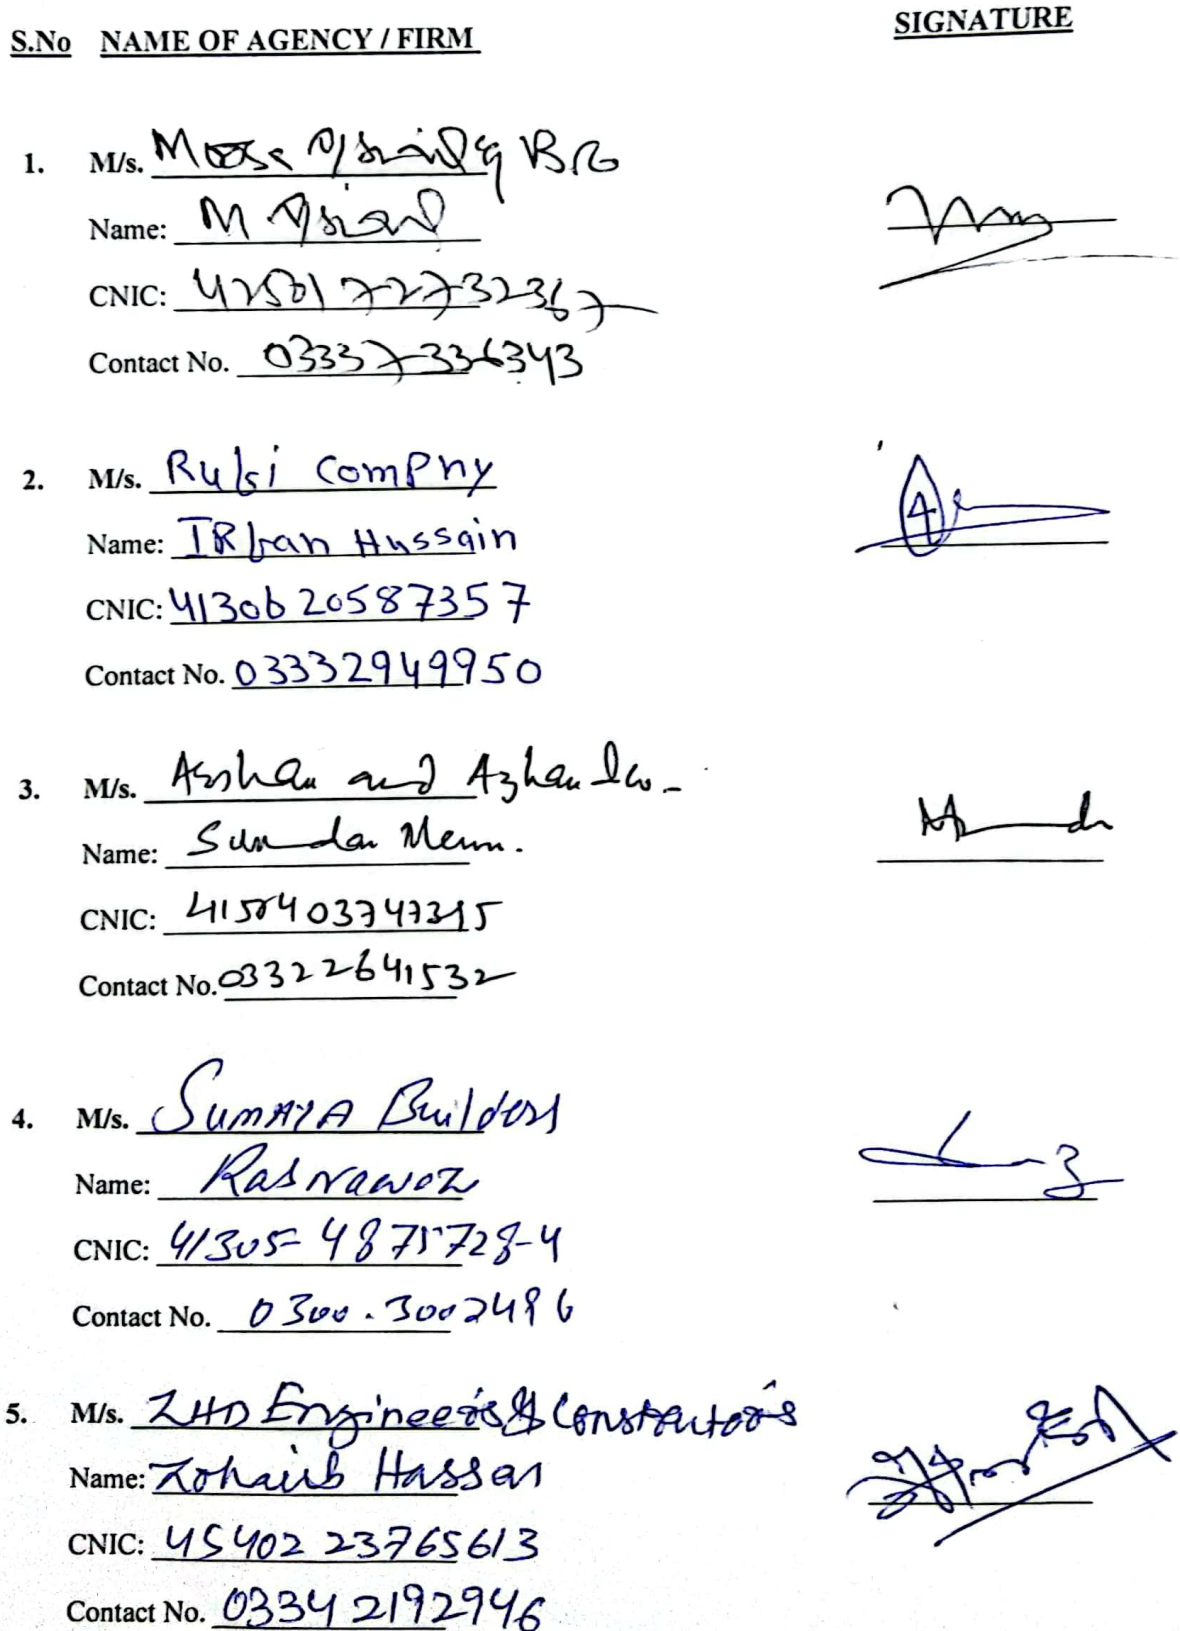 S.No NAME OF AGENCY / FIRM SIGNATURE
1. M/s. Bro
Name: M
CNIC: 4250172732367
Contact No. 03337336343
2. M/s. Rufsi ComPny
Name: IRfan Hussain
CNIC: 4130620587357
Contact No. 03332949950
3. M/s. and
Name:
CNIC: 4150403747315
Contact No. 03322641532
4. M/s. SUMAYA Builders
Name: Rabnawoz
CNIC: 41305-4875728-4
Contact No. 0300.3002496
5. M/s. ZHD Engineers & Constructors
Name: Zohaib Hassan
CNIC: 45402 23765613
Contact No. 0334 2192946